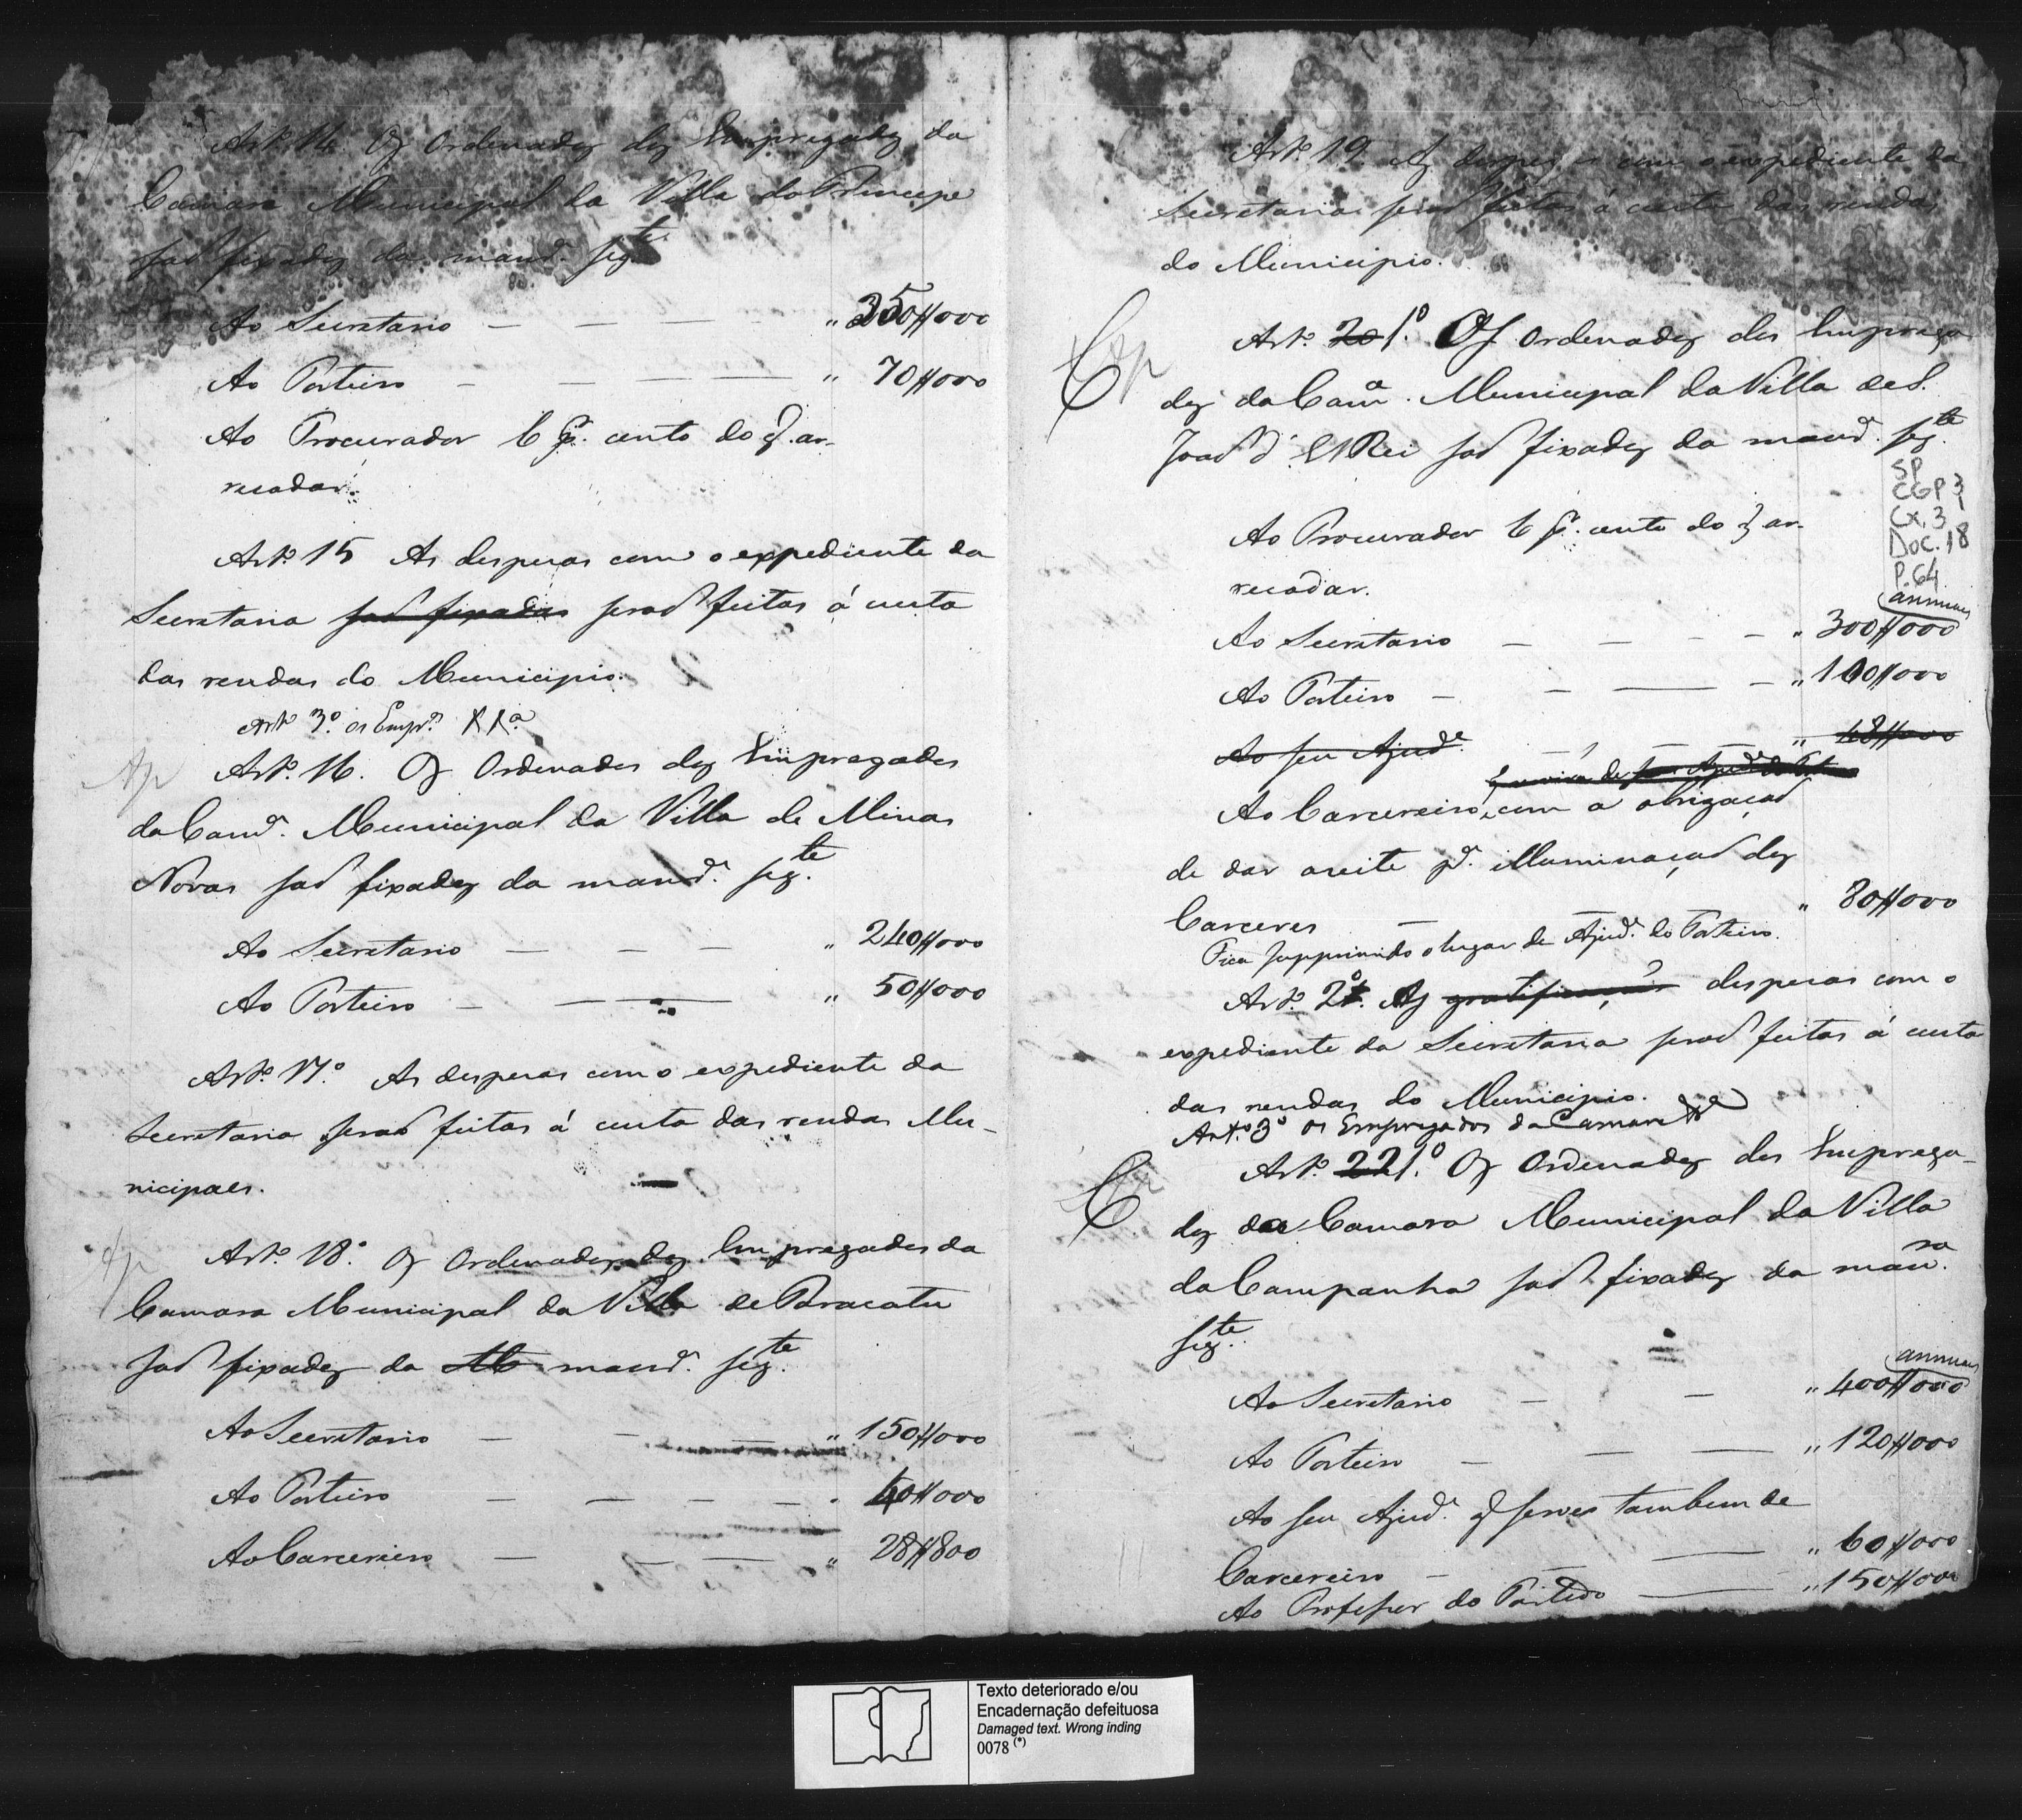 Art.º 14. Os Ordenados dos Empregados da
Camara Municipal da Villa do Principe
saõ fixados da manr.ª seg.te
Ao Secretario — — — — " 350$000
Ao Porteiro — — — — " 70$000
Ao Procurador 6 p. cento do q. ar-
recadar.
Art.º 15 As despezas com o expediente da
Secretaria saõ fixadas seraõ feitas á custa
das rendas do Municipio.
Art.º 3.º Os Empr.os
Art.º 16. Os Ordenados dos Empregados
da Camr.ª Municipal da Villa de Minas
Novas saõ fixados da manr.ª seg.te
Ao Secretario — — — " 240$000
Ao Porteiro — — — " 50$000
Art.º 17.º As despezas com o expediente da
Secretaria seraõ feitas á custa das rendas Mu-
nicipaes.
Ap
Art.º 18.º Os Ordenados dos Empregados da
Camara Municipal da Villa de Paracatu
saõ fixados da manr.ª seg.te
Ao Secretario — — — " 150$000
Ao Porteiro — — — — " 40$000
Ao Carcereiro — — — " 28$800
Art.º 19. As despezas com o expediente da
Secretaria seraõ feitas á custa das rendas
do Municipio.
Art.º 20 1.º Os Ordenados dos Emprega
dos da Camª. Municipal da Villa de S.
Joaõ d'El Rei saõ fixados da manr.ª seg.te
SP
CGP 3
Cx. 3
Doc. 18
P. 64
Ao Procurador 6 p. cento do q ar-
recadar.
annuaes
Ao Secretario — — — — " 300$000
Ao Porteiro — — — — " 100$000
Ao seu Ajud.e — — — " 48$000
Ao Carcereiro, com a obrigaçaõ
de dar azeite p.ª illuminaçaõ dos
Carceres — — " 80$000
Fica supprimido o lugar de Ajud.e do Porteiro.
Art.º 2.º As gratificações despezas com o
expediente da Secretaria seraõ feitas á custa
das rendas do Municipio.
Art.º 3º Os Empregados da Camara
Art.º 22 1.º Os Ordenados dos Emprega-
dos da Camara Municipal da Villa
da Campanha saõ fixados da man.ra
seg.te
annuaes
Ao Secretario — — " 400$000
Ao Porteiro — — — " 120$000
Ao seu Ajud.e q serve tambem de
Carcereiro — — — " 60$000
Ao Professor do Partido — — " 150$000
Texto deteriorado e/ou
Encadernação defeituosa
Damaged text. Wrong inding
0078 (*)